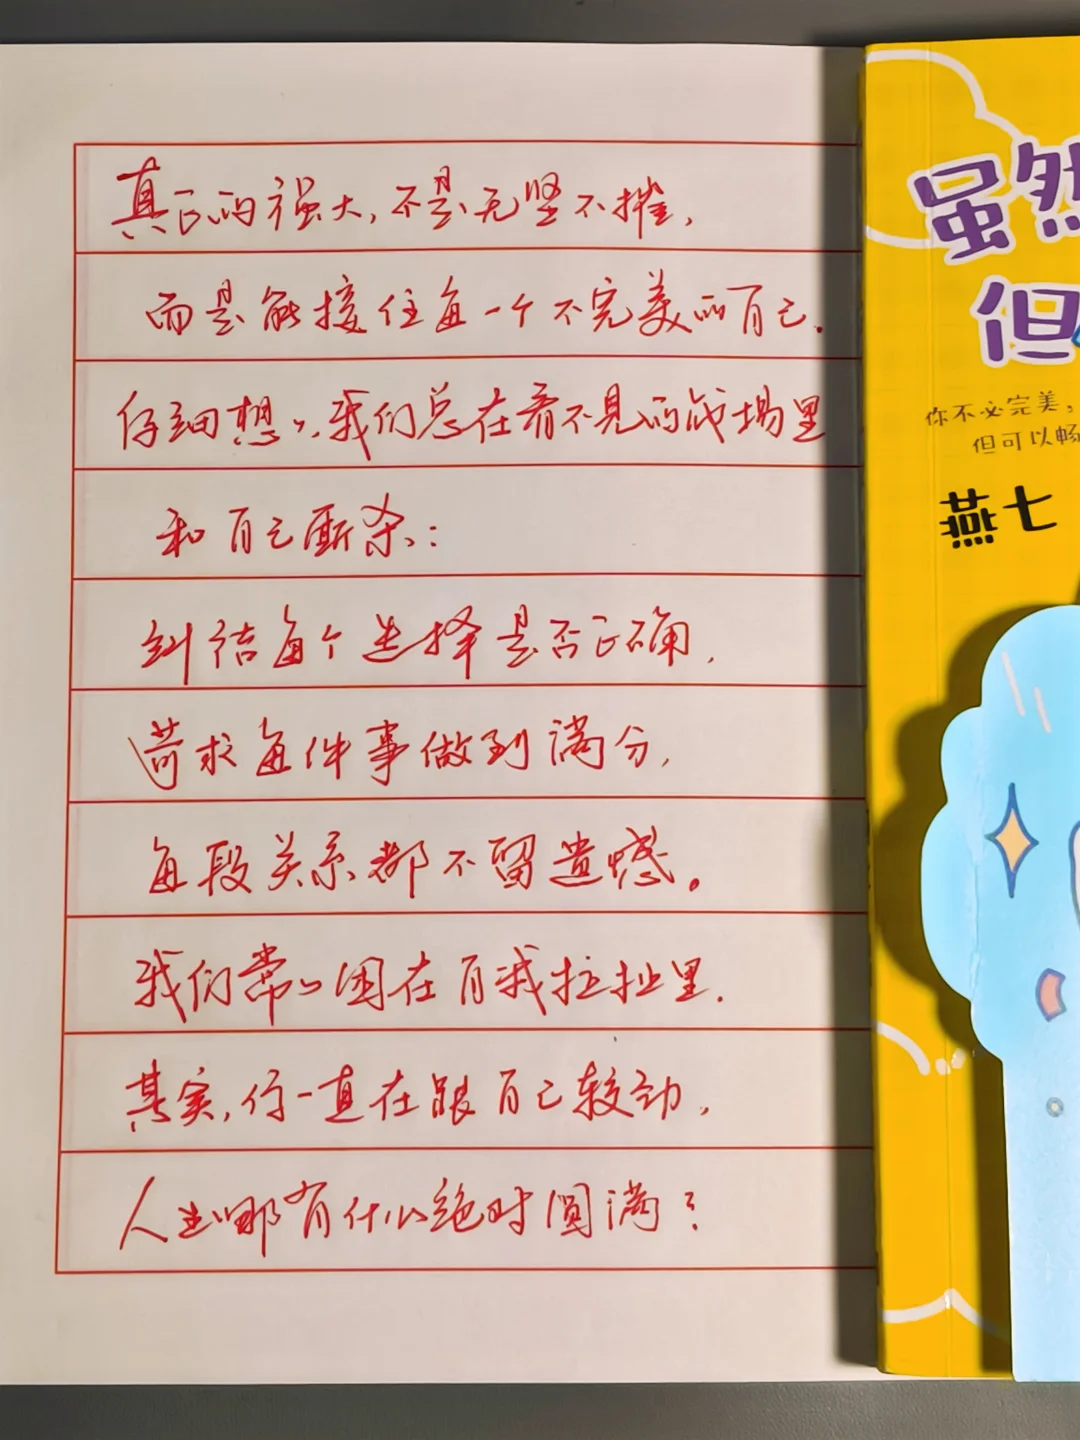 真正的强大，不是无坚不摧，
而是能接住每一个不完美的自己。
仔细想想，我们总在看不见的战场里
和自己厮杀：
纠结每个选择是否正确，
苛求每件事做到满分，
每段关系都不留遗憾。
我们常常困在自我拉扯里。
其实，你一直在跟自己较劲，
人生哪有什么绝对圆满？
虽然
但
你不必完美，
但可以畅
燕七